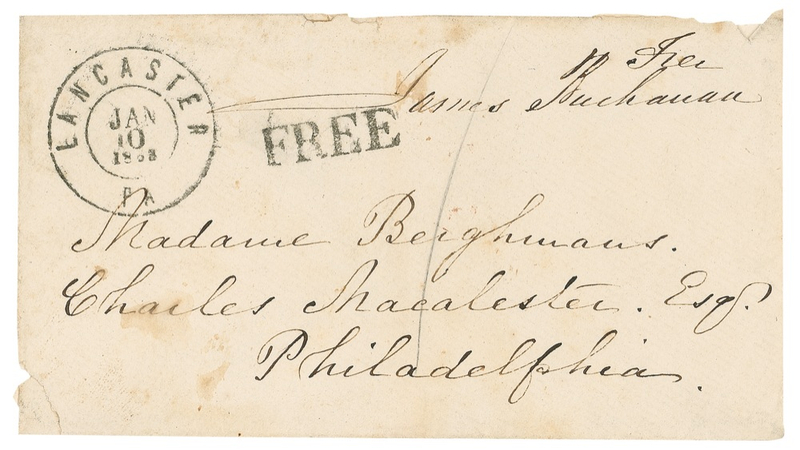 LANCASTER
JAN
10
1863
PA
FREE
Free
James Buchanan
Madame Berghmans.
Charles Macalester. Esqr.
Philadelphia.